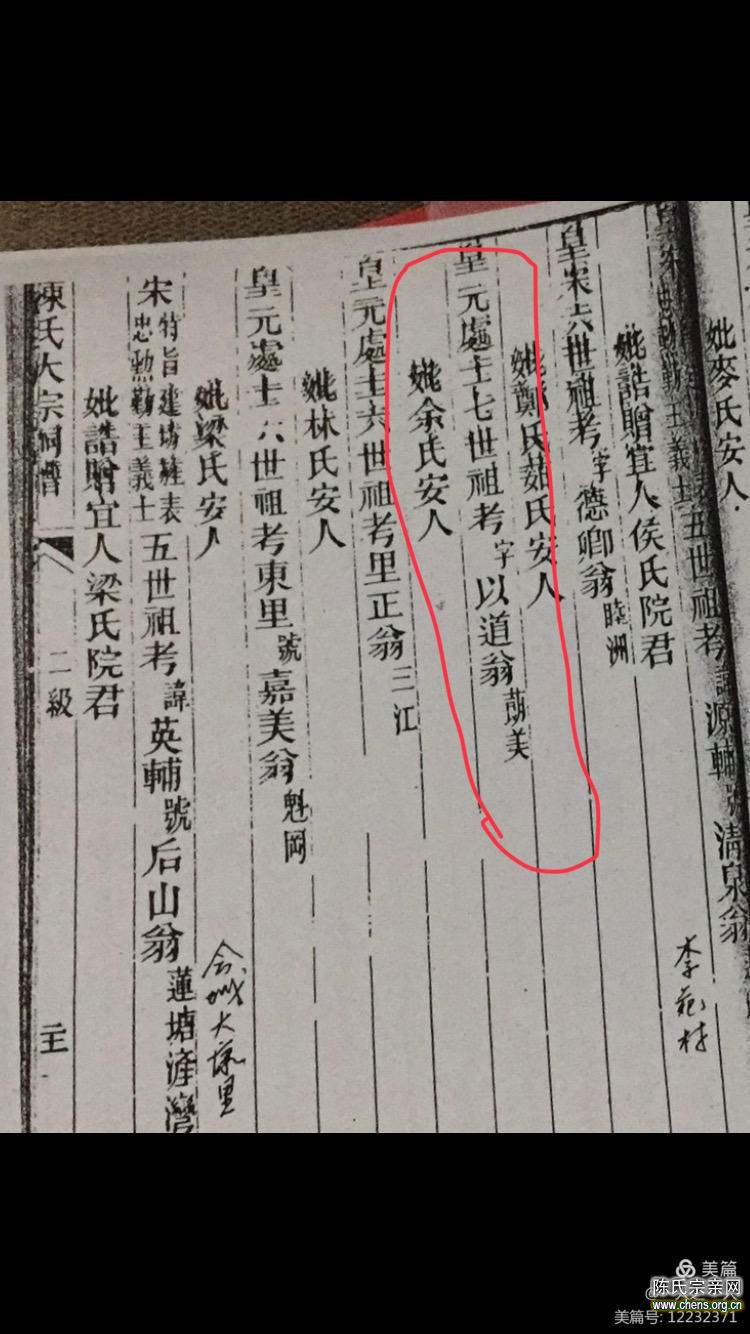 妣麥氏安人
五世祖考諱源輔號清泉翁
李苑村
妣誥贈宜人侯氏院君
皇宋六世祖考字德卿翁睦洲
妣鄭氏茹氏安人
皇元處士七世祖考字以道翁萠美
妣余氏安人
皇元處士六世祖考里正翁三江
妣林氏安人
皇元處士六世祖考東里號嘉美翁魁岡
妣梁氏安人
宋特旨建坊旌表忠勲勤王義士五世祖考諱英輔號后山翁蓮塘滻灣
妣誥贈宜人梁氏院君
陳氏大宗祠譜
二級
美篇
陈氏宗亲网
www.chens.org.cn
美篇号: 12232371